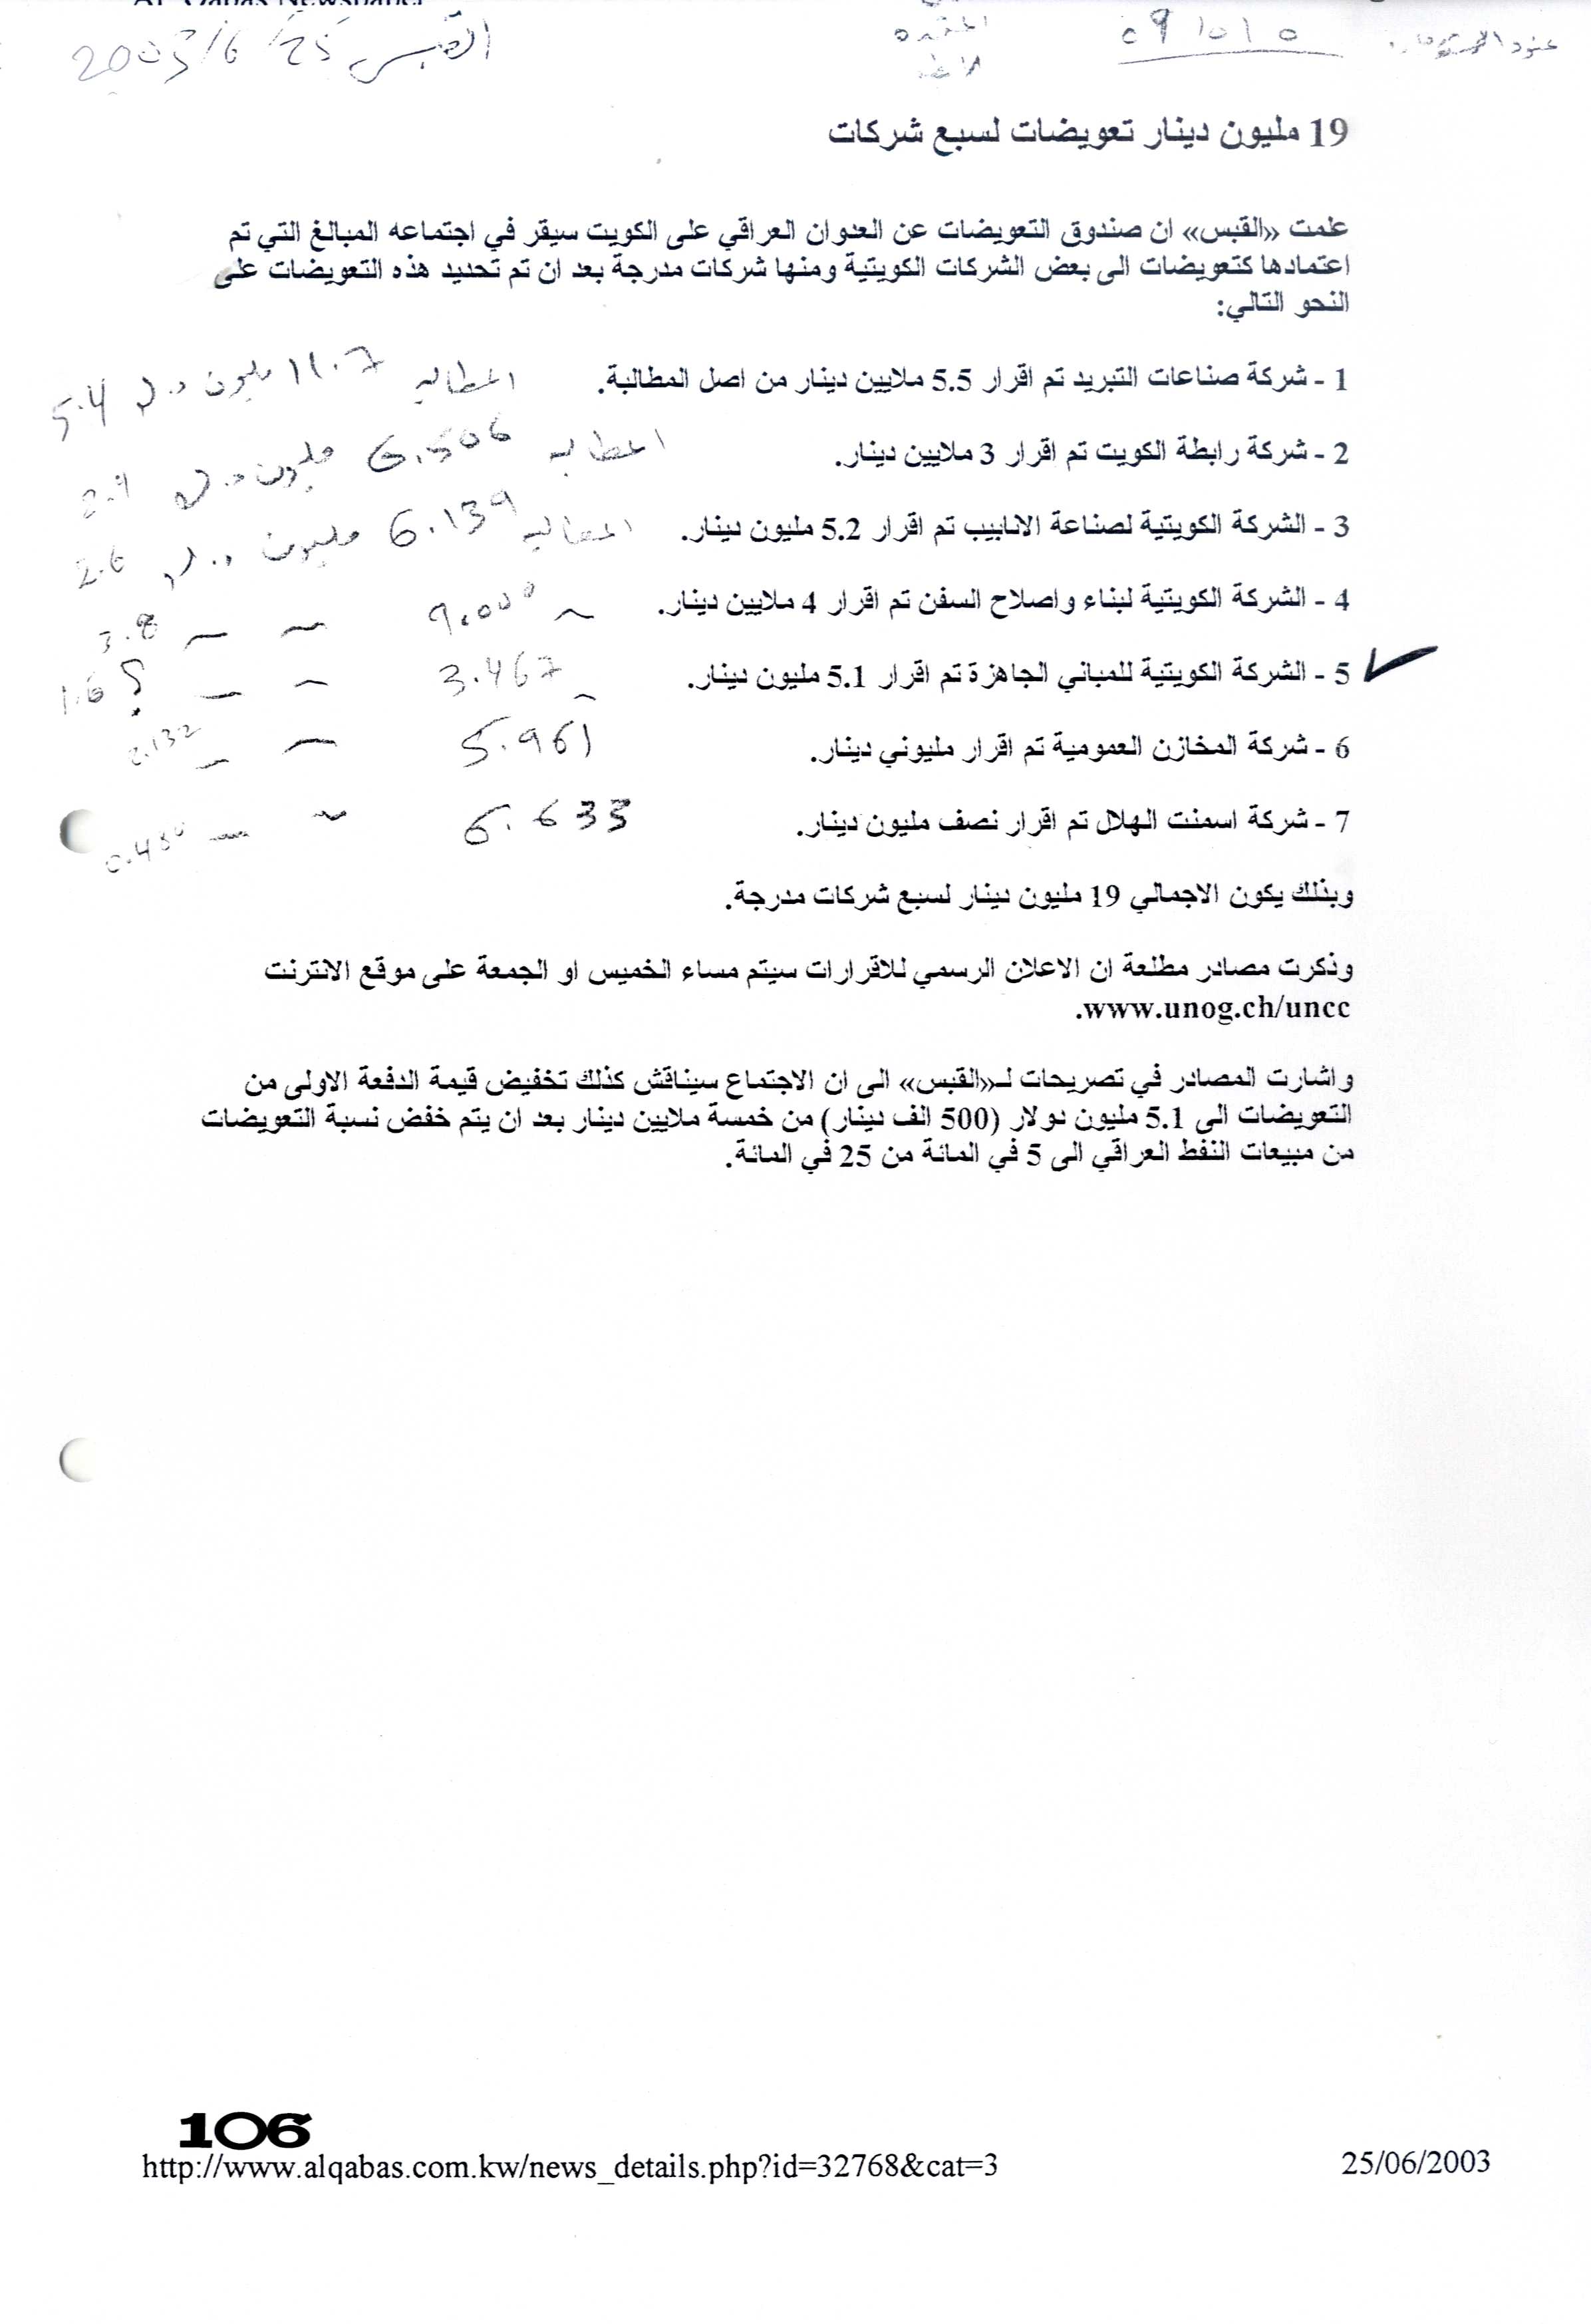 القبس 2003/6/25
19 مليون دينار تعويضات لسبع شركات
علمت «القبس» ان صندوق التعويضات عن العدوان العراقي على الكويت سيقر في اجتماعه المبالغ التي تم
اعتمادها كتعويضات الى بعض الشركات الكويتية ومنها شركات مدرجة بعد ان تم تحديد هذه التعويضات على
النحو التالي:
1 - شركة صناعات التبريد تم اقرار 5.5 ملايين دينار من اصل المطالبة. المطالبه 11.7 مليون د.ك 5.4
2 - شركة رابطة الكويت تم اقرار 3 ملايين دينار. المطالبه 6.506 مليون د.ك 2.9
3 - الشركة الكويتية لصناعة الانابيب تم اقرار 5.2 مليون دينار. المطالبه 6.139 مليون د.ك 2.6
4 - الشركة الكويتية لبناء واصلاح السفن تم اقرار 4 ملايين دينار. 9.000 3.8
5 - الشركة الكويتية للمباني الجاهزة تم اقرار 5.1 مليون دينار. 3.467 ؟ 1.6
6 - شركة المخازن العمومية تم اقرار مليوني دينار. 5.961 2.132
7 - شركة اسمنت الهلال تم اقرار نصف مليون دينار. 6.633
وبذلك يكون الاجمالي 19 مليون دينار لسبع شركات مدرجة.
وذكرت مصادر مطلعة ان الاعلان الرسمي للاقرارات سيتم مساء الخميس او الجمعة على موقع الانترنت
www.unog.ch/uncc.
واشارت المصادر في تصريحات لـ«القبس» الى ان الاجتماع سيناقش كذلك تخفيض قيمة الدفعة الاولى من
التعويضات الى 5.1 مليون دولار (500 الف دينار) من خمسة ملايين دينار بعد ان يتم خفض نسبة التعويضات
من مبيعات النفط العراقي الى 5 في المائة من 25 في المائة.
106
http://www.alqabas.com.kw/news_details.php?id=32768&cat=3 25/06/2003